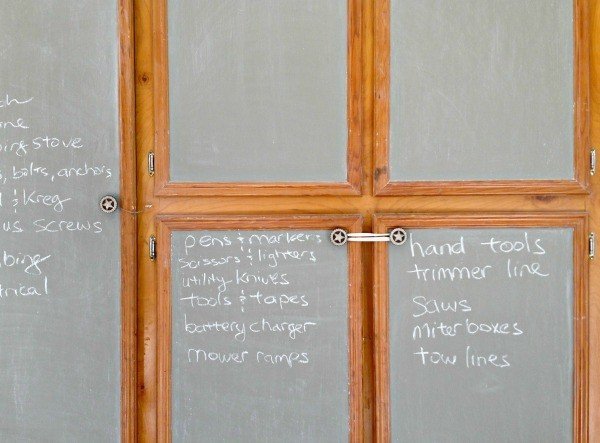 stove
bolts, anchors
& Kreg
screws
pens & markers
scissors & lighters
utility knives
tools & tapes
battery charger
mower ramps
hand tools
trimmer line
saws
miter boxes
tow lines